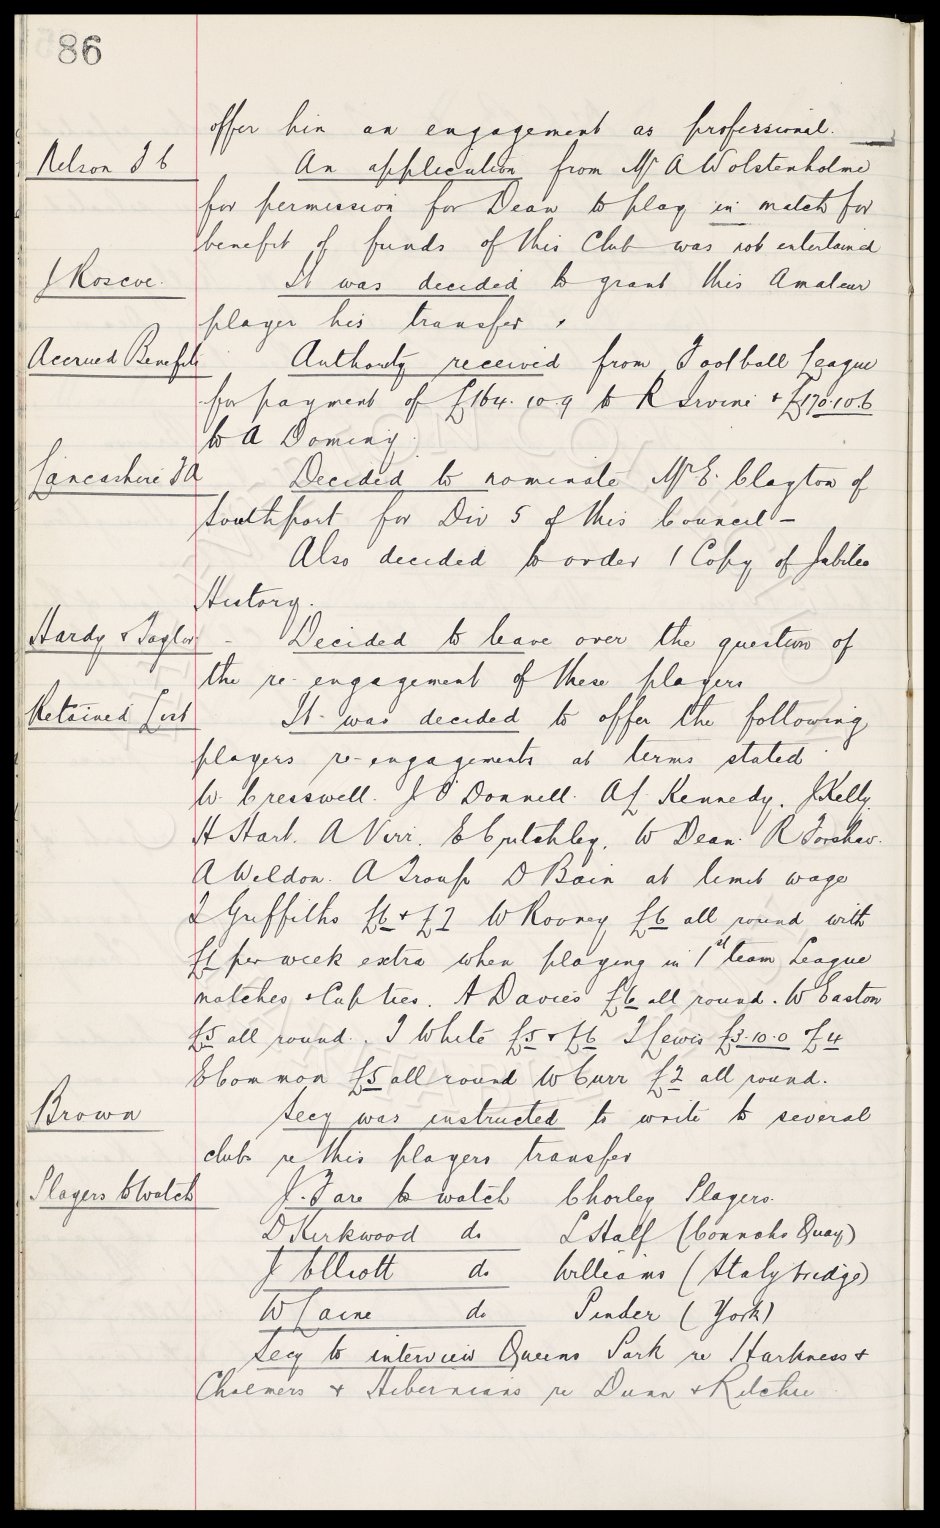 86
offer him an engagement as professional.
Nelson F C An application from Mr A Wolstenholme
for permission for Dean to play in match for
benefit of funds of this Club was not entertained
J Roscoe. It was decided to grant this Amateur
player his transfer.
Accrued Benefits Authority received from Football League
for payment of £164.10.9 to R Irvine & £170.10.6
to A Dominy.
Lancashire FA Decided to nominate Mr E. Clayton of
Southport for Div 5 of this Council -
Also decided to order 1 Copy of Jubilee
History.
Hardy & Taylor - Decided to leave over the question of
the re-engagement of these players
Retained List It was decided to offer the following
players re-engagements at terms stated
W. Cresswell. J O'Donnell. A L Kennedy. J Kelly.
H Hart. A Virr. E Critchley. W Dean. R Forshaw.
A Weldon. A Troup D Bain at limit wage
T Griffiths £6 & £7 W Rooney £6 all round with
£1 per week extra when playing in 1st team League
matches & Cup ties. A Davies £6 all round. W Easton
£5 all round. T White £5 & £6 T Lewis £3.10.0 £4
E Common £5 all round W Curr £2 all round.
Brown Secy was instructed to write to several
clubs re this players transfer
Players to Watch J. Fare to watch Chorley Players.
D Kirkwood do L Half (Connahs Quay)
J Elliott do Williams (Stalybridge)
W Laine do Pinder (York)
Secy to interview Queens Park re Harkness &
Chalmers & Hibernians re Dunn & Ritchie